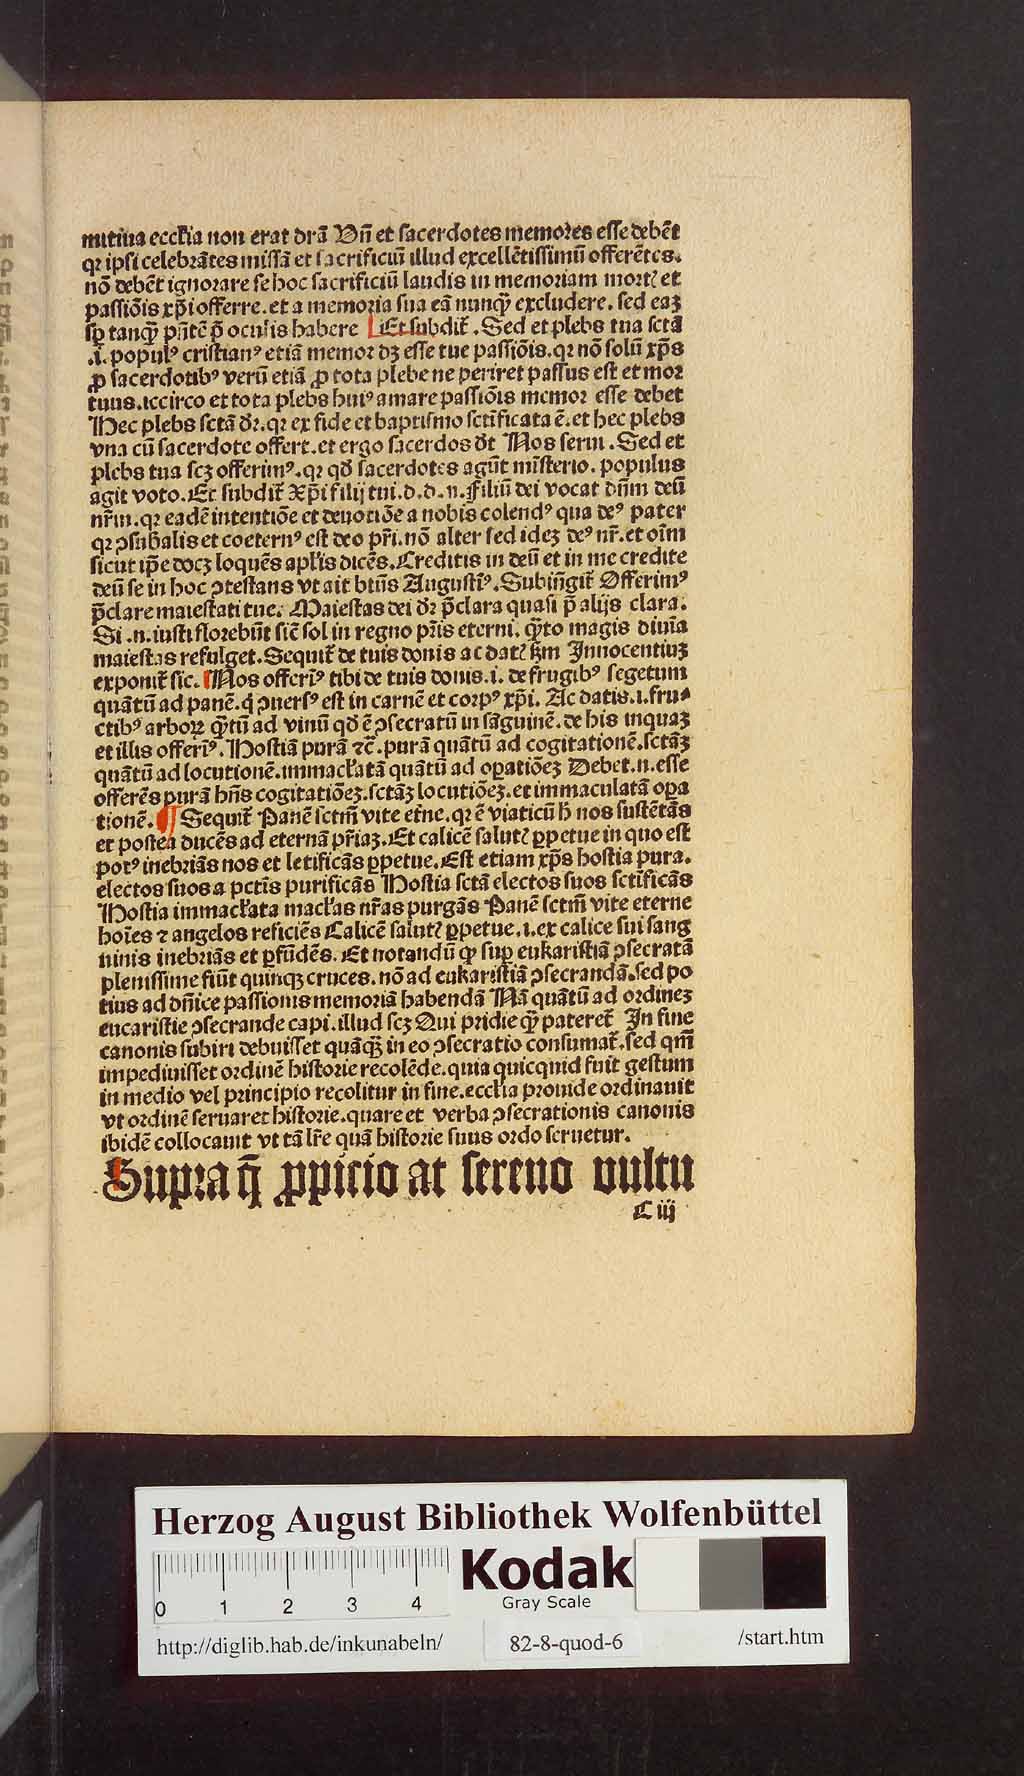 mitiua eccłia non erat drā Vñ et sacerdotes memores esse debēt
qꝛ ipsi celebrātes missā et sacrificiū illud excellētissimū offerētes.
nō debēt ignorare se hoc sacrificiū laudis in memoriam mortꝭ et
passiōis xp̄i offerre. et a memoria sua eā nunqꝫ excludere. sed eaꝫ
sꝑ tanqꝫ pn̄tē p̄ oculis habere Et subdit᷑. Sed et plebs tua sctā
.i. populꝰ cristianꝰ etiā memor dꝫ esse tue passiōis. qꝛ nō solū xp̄s
ꝓ sacerdotibꝰ verū etiā ꝓ tota plebe ne periret passus est et mor
tuus. iccirco et tota plebs huiꝰ amare passiōis memor esse debet
Hec plebs sctā dꝛ. qꝛ ex fide et baptismo sctīficata ē. et hec plebs
vna cū sacerdote offert. et ergo sacerdos dt Nos serui. Sed et
plebs tua scꝫ offerimꝰ. qꝛ qd̄ sacerdotes agūt mīsterio. populus
agit voto. Et subdit᷑ Xp̄i filij tui. d. d. n. Filiū dei vocat dn̄m deū
nr̄m. qꝛ eadē intentiōe et deuotiōe a nobis colendꝰ qua deꝰ pater
qꝛ ꝯsub̄alis et coeternꝰ est deo pr̄i. nō alter sed ideꝫ deꝰ nr̄. et oīm
sicut ip̄e docꝫ loquēs apłis dicēs. Creditis in deū et in me credite
deū se in hoc ꝯtestans vt ait btūs Augustīꝰ. Subiṅgit᷑ Offerimꝰ
p̄clare maiestati tue. Maiestas dei dꝛ p̄clara quasi p̄ alijs clara.
Si .n. iusti florebūt sic̄ sol in regno pr̄is eterni. qꝫto magis diuīa
maiestas refulget. Sequit᷑ de tuis donis ac datꝭ ẜm Innocentiuꝫ
exponit᷑ sic. Nos offerīꝰ tibi de tuis donis. i. de frugibꝰ segetum
quātū ad panē. q̇ ꝯuersꝰ est in carnē et corpꝰ xp̄i. Ac datis. i. fru⸗
ctibꝰ arboꝝ qꝫtū ad vinū qd̄ ē ꝯsecratū in sāguinē. de his inquaꝫ
et illis offerīꝰ. Hostiā purā ⁊c̄. purā quātū ad cogitationē. sctāꝫ
quātū ad locutionē. immacłatā quātū ad oꝑatiōeꝫ Debet .n. esse
offerēs purā hn̄s cogitatiōeꝫ. sctāꝫ locutiōeꝫ. et immaculatā oꝑa
tionē. ¶ Sequit᷑ Panē sctm̄ vite et̄ne. qꝛ ē viaticū h̄ nos sustētās
et postea ducēs ad eternā pr̄iaꝫ. Et calicē salutꝭ ꝑpetue in quo est
potꝰ inebriās nos et letificās ꝑpetue. Est etiam xp̄s hostia pura.
electos suos a pctīs purificās Hostia sctā electos suos sctīficās
Hostia immacłata macłas nr̄as purgās Panē sctm̄ vite eterne
hoīes ⁊ angelos reficiēs Calicē salutꝭ ꝑpetue. i. ex calice sui sang
uinis inebriās et ꝑfūdēs. Et notandū qꝫ suꝑ eukaristiā ꝯsecratā
plenissime fiūt quinqꝫ cruces. nō ad eukaristiā ꝯsecrandā. sed po
tius ad dn̄ice passionis memoriā habendā Nā quātū ad ordineꝫ
eucaristie ꝯsecrande capi. illud scꝫ Qui pridie qꝫ pateret᷑ In fine
canonis subiri debuisset quāqꝫ in eo ꝯsecratio consumat᷑. sed qm̄
impediuisset ordinē historie recolēde. quia quicquid fuit gestum
in medio vel principio recolitur in fine. eccłia prouide ordinauit
vt ordinē seruaret historie. quare et verba ꝯsecrationis canonis
ibidē collocauit vt tā lr̄e quā historie suus ordo seruetur.
Supra q̄ ꝓpicio ac sereno vultu
C iij
Herzog August Bibliothek Wolfenbüttel
0 1 2 3 4
Kodak
Gray Scale
http://diglib.hab.de/inkunabeln/
82-8-quod-6
/start.htm